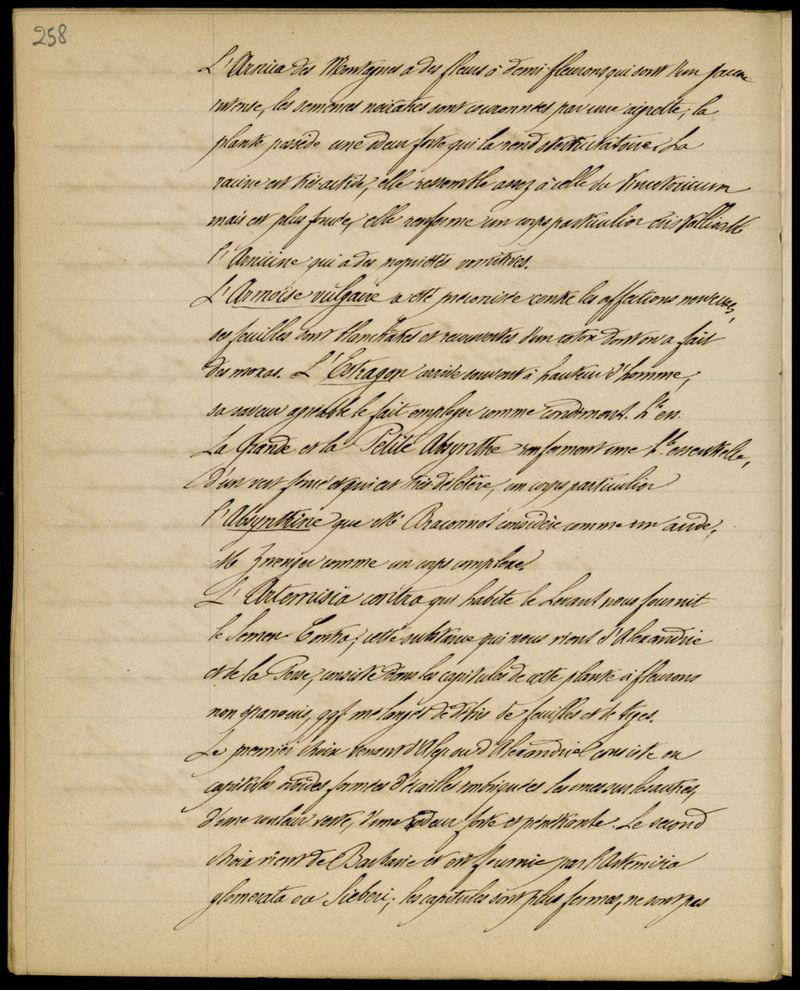 258
L'Arnica des Montagnes a des fleurs à demi fleurons, qui sont d'un jaune
intense, les semences noirâtres sont couronnées par une aigrette; la
plante possède une odeur forte qui la rend sternutatoire. La
racine est très active, elle ressemble assez à celle du
mais est plus foncée, elle renferme un corps particulier cristallisable
l'Arnicine qui a des propriétés vomitives.
L'Armoise vulgaire a été préconisée contre les affections nerveuses,
ses feuilles sont blanchâtres et recouvertes d'un coton dont on a fait
des moxas. L'Estragon arrive souvent à hauteur d'homme,
sa saveur agréable le fait employer comme condiment. Hle ess.
La Grande et la Petite Absynthe renferment une Hle essentielle,
d'un vert foncé et qui est très délétère, un corps particulier
l'Absynthine que Mr Braconnot considère comme un acide,
Mr comme un corps complexe.
L'Artemisia contra qui habite le Levant nous fournit
le Semen Contra; cette substance qui nous vient d'Alexandrie
et de la Perse, consiste dans les capitules de cette plante à fleurons
non épanouis, qqf mélangés de débris de feuilles et de tiges.
Le premier choix venant d'Alep ou d'Alexandrie consiste en
capitules ovoïdes formés d'écailles imbriquées les unes sur les autres,
d'une couleur verte, d'une odeur forte et pénétrante. Le second
choix vient de Barbarie et est fournie par l'Artemisia
glomerata ou Sieberi; les capitules sont plus fermes, ne sont pas